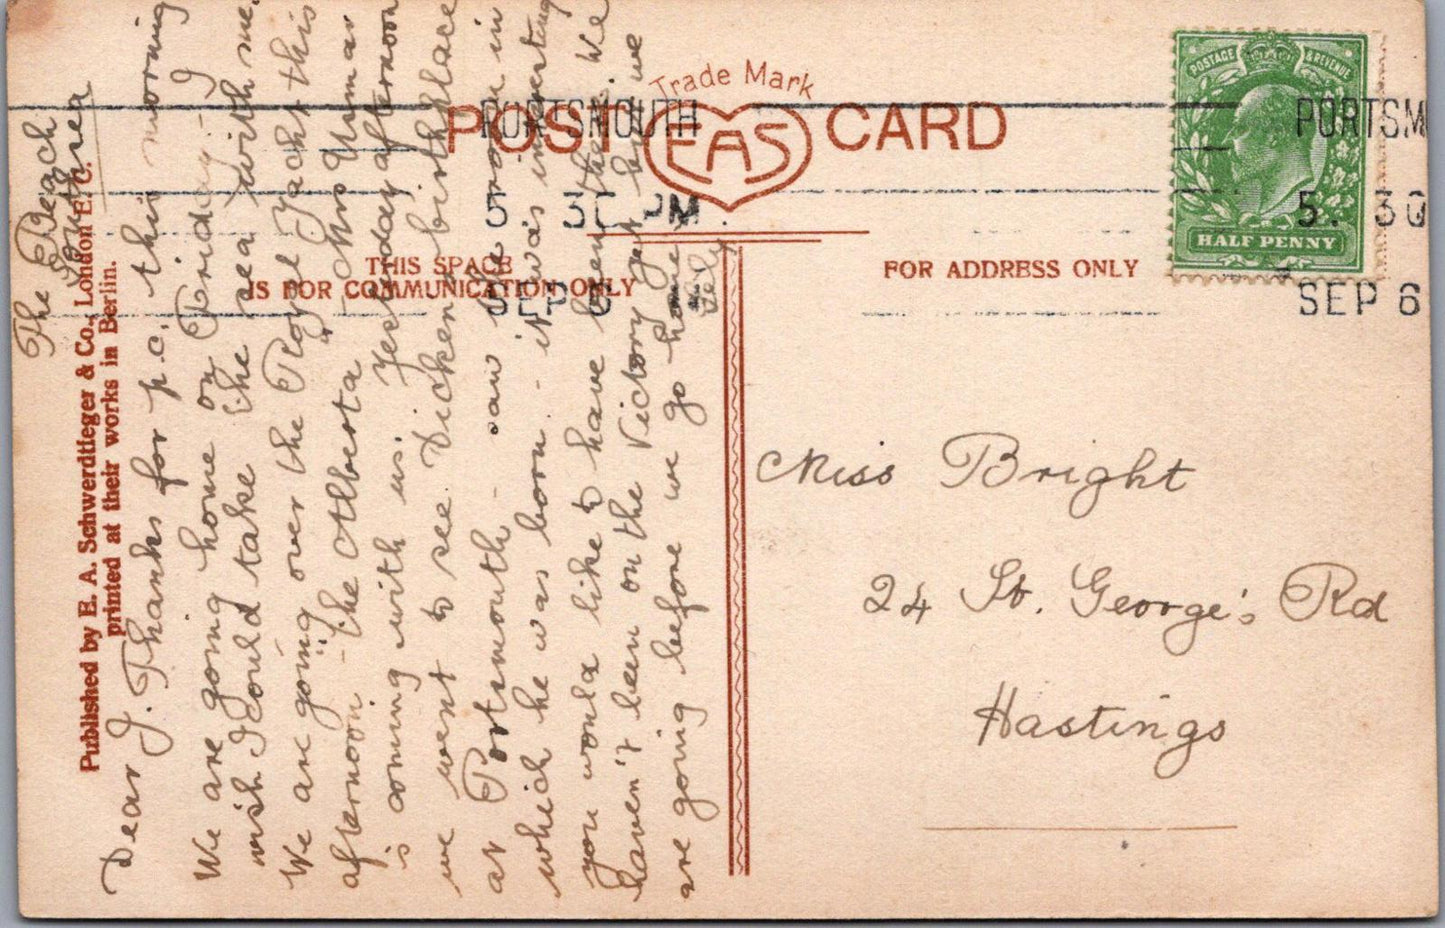 The Beach
Southsea
Dear J. Thanks for p.c. this morning
We are going home on Friday - I
wish I could take the sea with me.
We are going over the Royal Yacht this
afternoon - the "Alberta" Mrs
is coming with us. Yesterday afternoon
we went to see Dicken birthplace
at Portsmouth - saw the room in
which he was born - it was interesting
you would like to have been there. We
haven't been on the Victory yet but we
are going before we go home
Published by E. A. Schwerdtfeger & Co., London E. C.
printed at their works in Berlin.
Trade Mark
POST EAS CARD
THIS SPACE
IS FOR COMMUNICATION ONLY
FOR ADDRESS ONLY
PORTSMOUTH
5. 30 PM
SEP 6
POSTAGE & REVENUE
HALF PENNY
PORTSM
5. 30
SEP 6
Miss Bright
24 St. George's Rd
Hastings